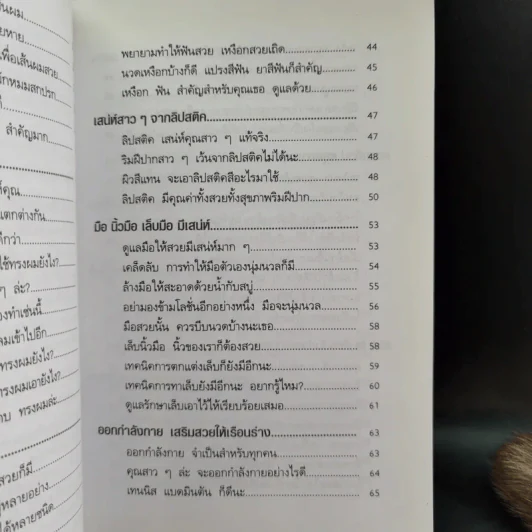 ยหาย
เพื่อเส้นผมสวย
สำคัญมาก
แตกต่างกัน
ใช้ทรงผมยังไง?
ๆ ล่ะ?
ทรงผมยังไง?
ทรงผมเอายังไง?
ทรงผมล่ะ
สวยก็มี
พยายามทำให้ฟันสวย เหงือกสวยเถิด 44
นวดเหงือกบ้างก็ดี แปรงสีฟัน ยาสีฟันก็สำคัญ 45
เหงือก ฟัน สำคัญสำหรับคุณเธอ ดูแลด้วย 46
เสน่ห์สาว ๆ จากลิปสติค 47
ลิปสติค เสน่ห์คุณสาว ๆ แท้จริง 47
ริมฝีปากสาว ๆ เว้นจากลิปสติคไม่ได้นะ 48
ผิวสีแทน จะเอาลิปสติคสีอะไรมาใช้ 48
ลิปสติค มีคุณค่าทั้งสวยทั้งสุขภาพริมฝีปาก 50
มือ นิ้วมือ เล็บมือ มีเสน่ห์ 53
ดูแลมือให้สวยมีเสน่ห์มาก ๆ 53
เคล็ดลับ การทำให้มือตัวเองนุ่มนวลก็มี 54
ล้างมือให้สะอาดด้วยน้ำกับสบู่ 55
อย่ามองข้ามโลชั่นอีกอย่างหนึ่ง มือจะนุ่มนวล 56
มือสวยนั้น ควรบีบนวดบ้างนะเธอ 58
เล็บนิ้วมือ นิ้วของเราก็ต้องสวย 58
เทคนิคการตกแต่งเล็บก็ยังมีอีกนะ 59
เทคนิคการทาเล็บยังมีอีกนะ อยากรู้ไหม? 60
ดูแลรักษาเล็บเอาไว้ให้เรียบร้อยเสมอ 61
ออกกำลังกาย เสริมสวยให้เรือนร่าง 63
ออกกำลังกาย จำเป็นสำหรับทุกคน 63
คุณสาว ๆ ล่ะ จะออกกำลังกายอย่างไรดี 64
เทนนิส แบดมินตัน ก็ดีนะ 65